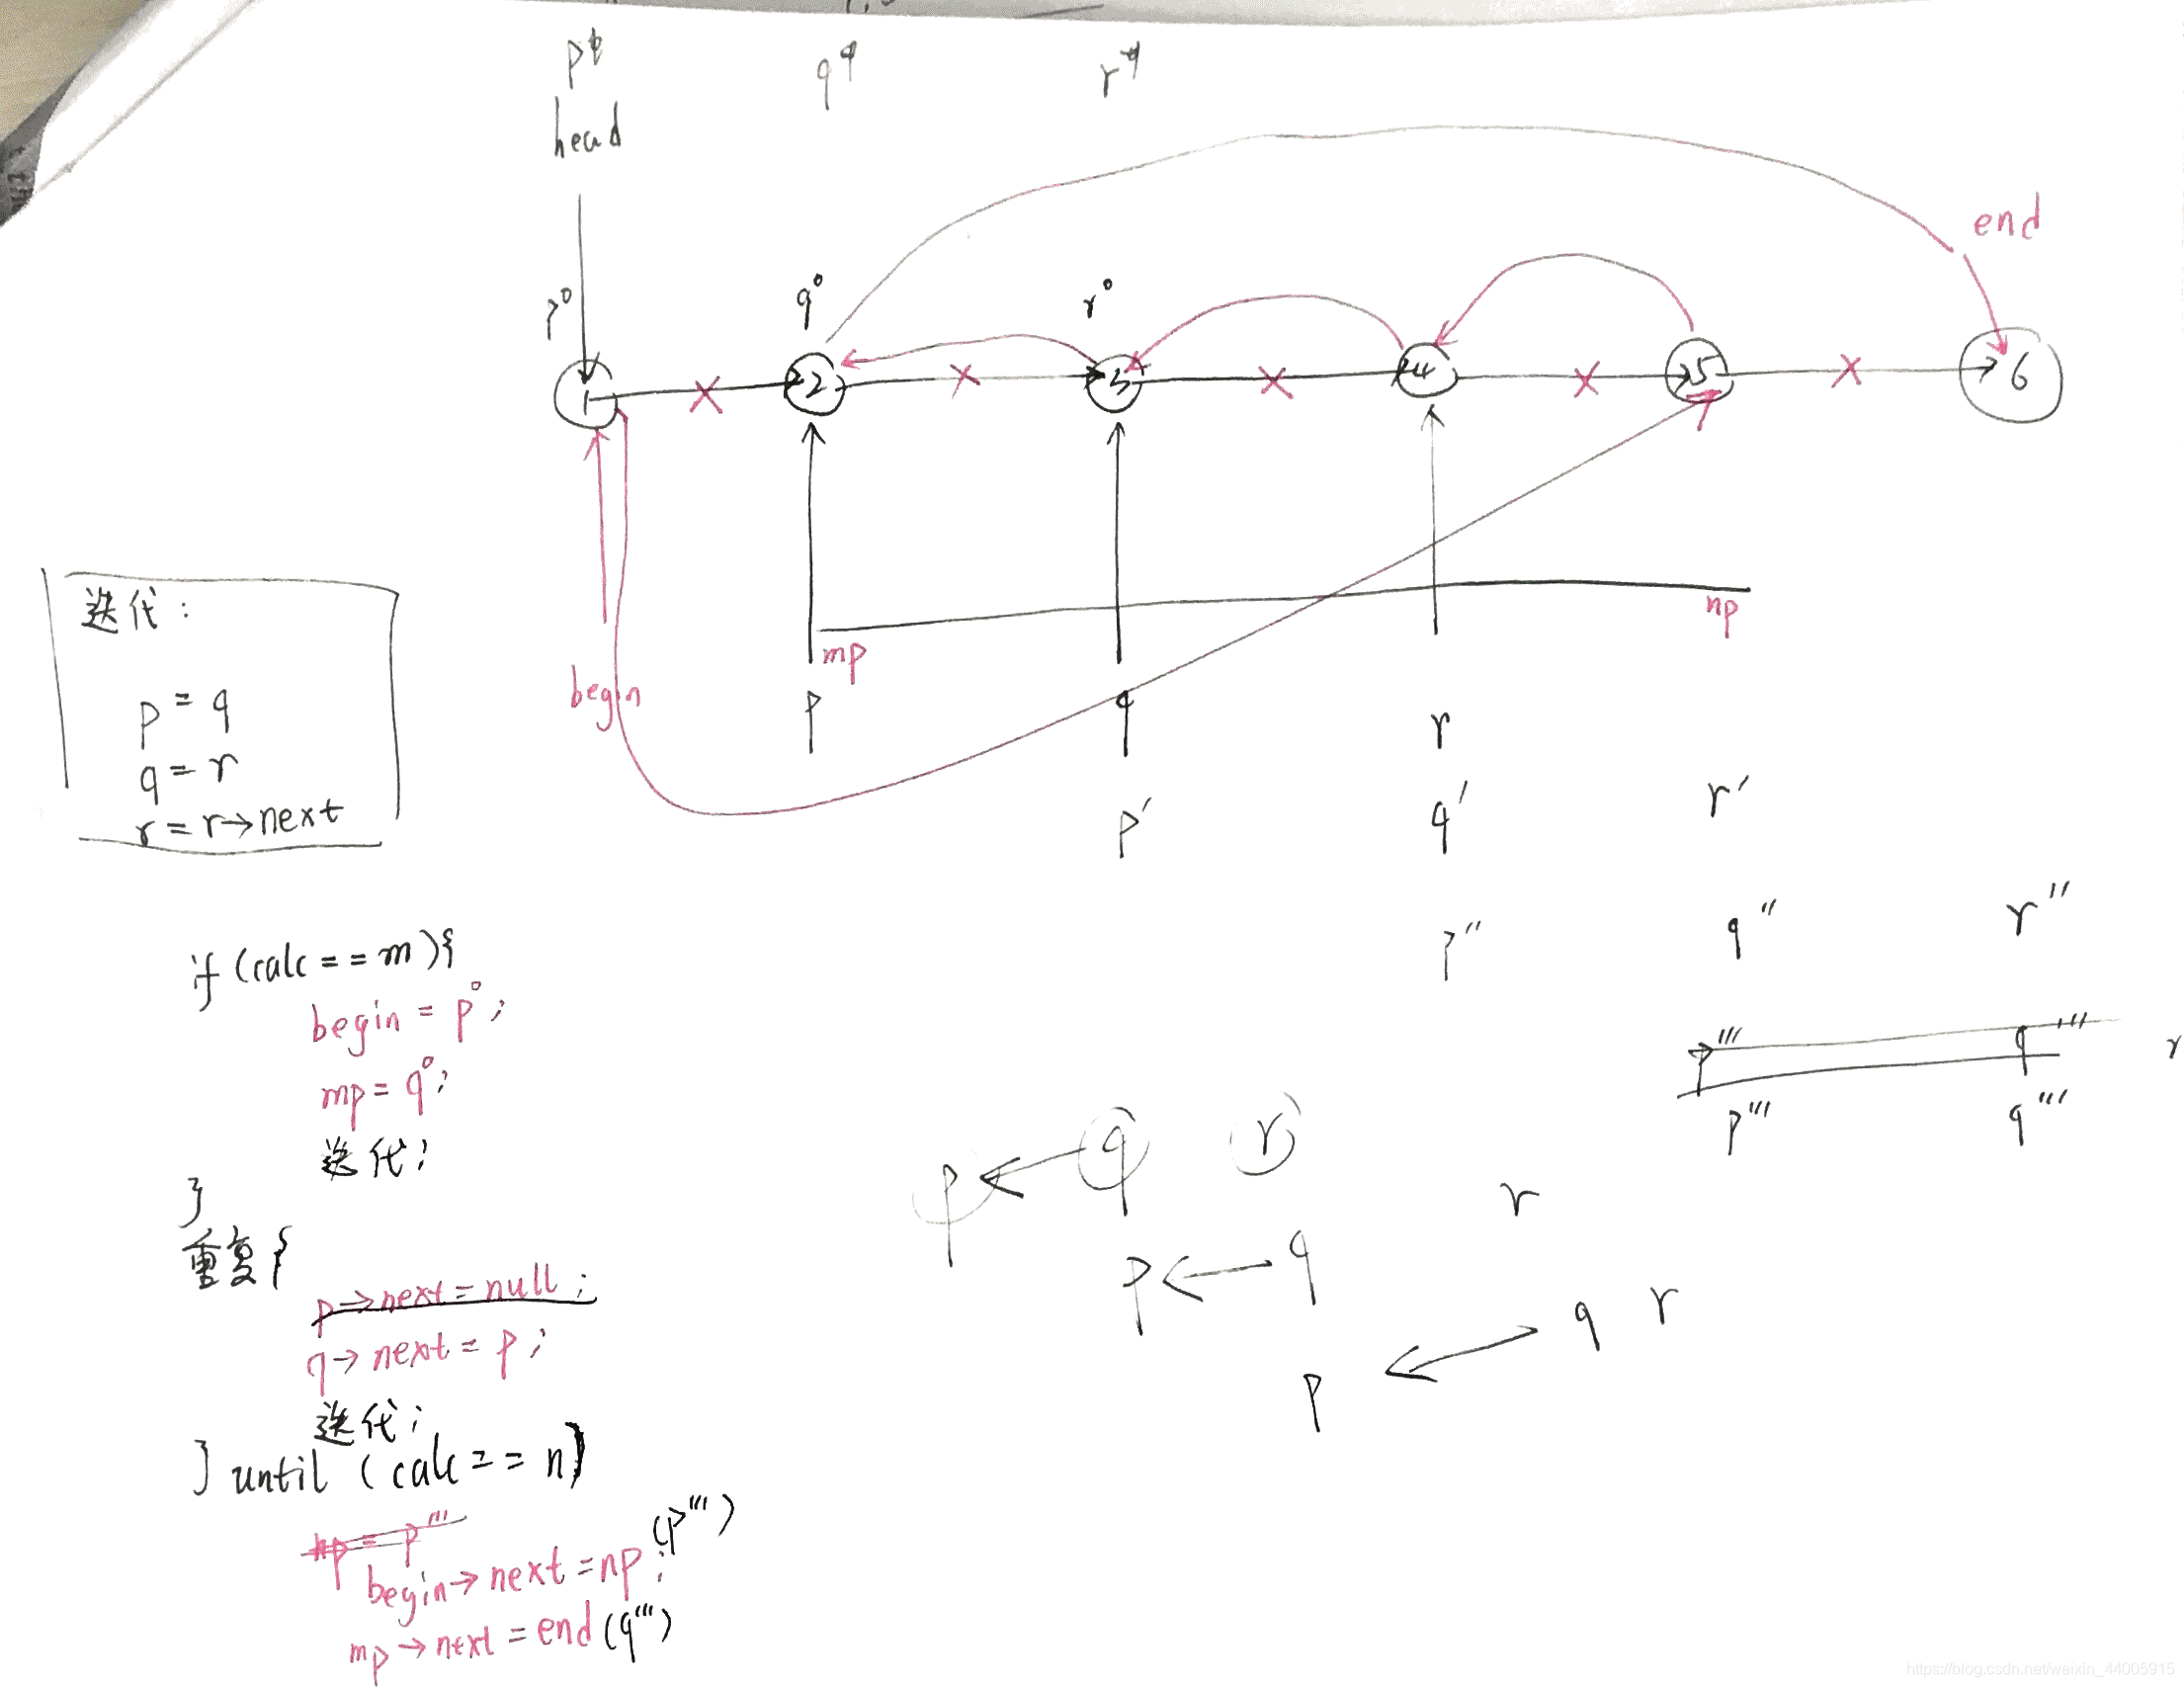 head
end
p⁰
q⁰
r⁰
1
2
3
4
5
6
np
mp
begin
p
q
r
p′
q′
r′
p″
q″
r″
p‴
q‴
r
p‴
q‴
迭代:
p = q
q = r
r = r→next
if (calc == m){
begin = p⁰;
mp = q⁰;
迭代;
}
重复{
p→next = null;
q→next = p;
迭代;
} until (calc == n)
np = p‴
begin→next = np; (p‴)
mp→next = end (q‴)
p
q
r
p
q
r
p
q
r
https://blog.csdn.net/weixin_44005915